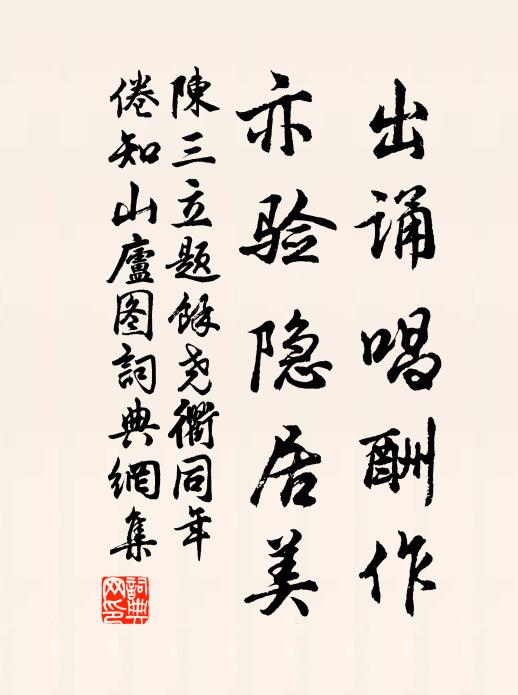 出诵唱酬作
亦验隐居美
陳三立题餘尧衢同年
倦知山廬图詞典網集
詞典网印